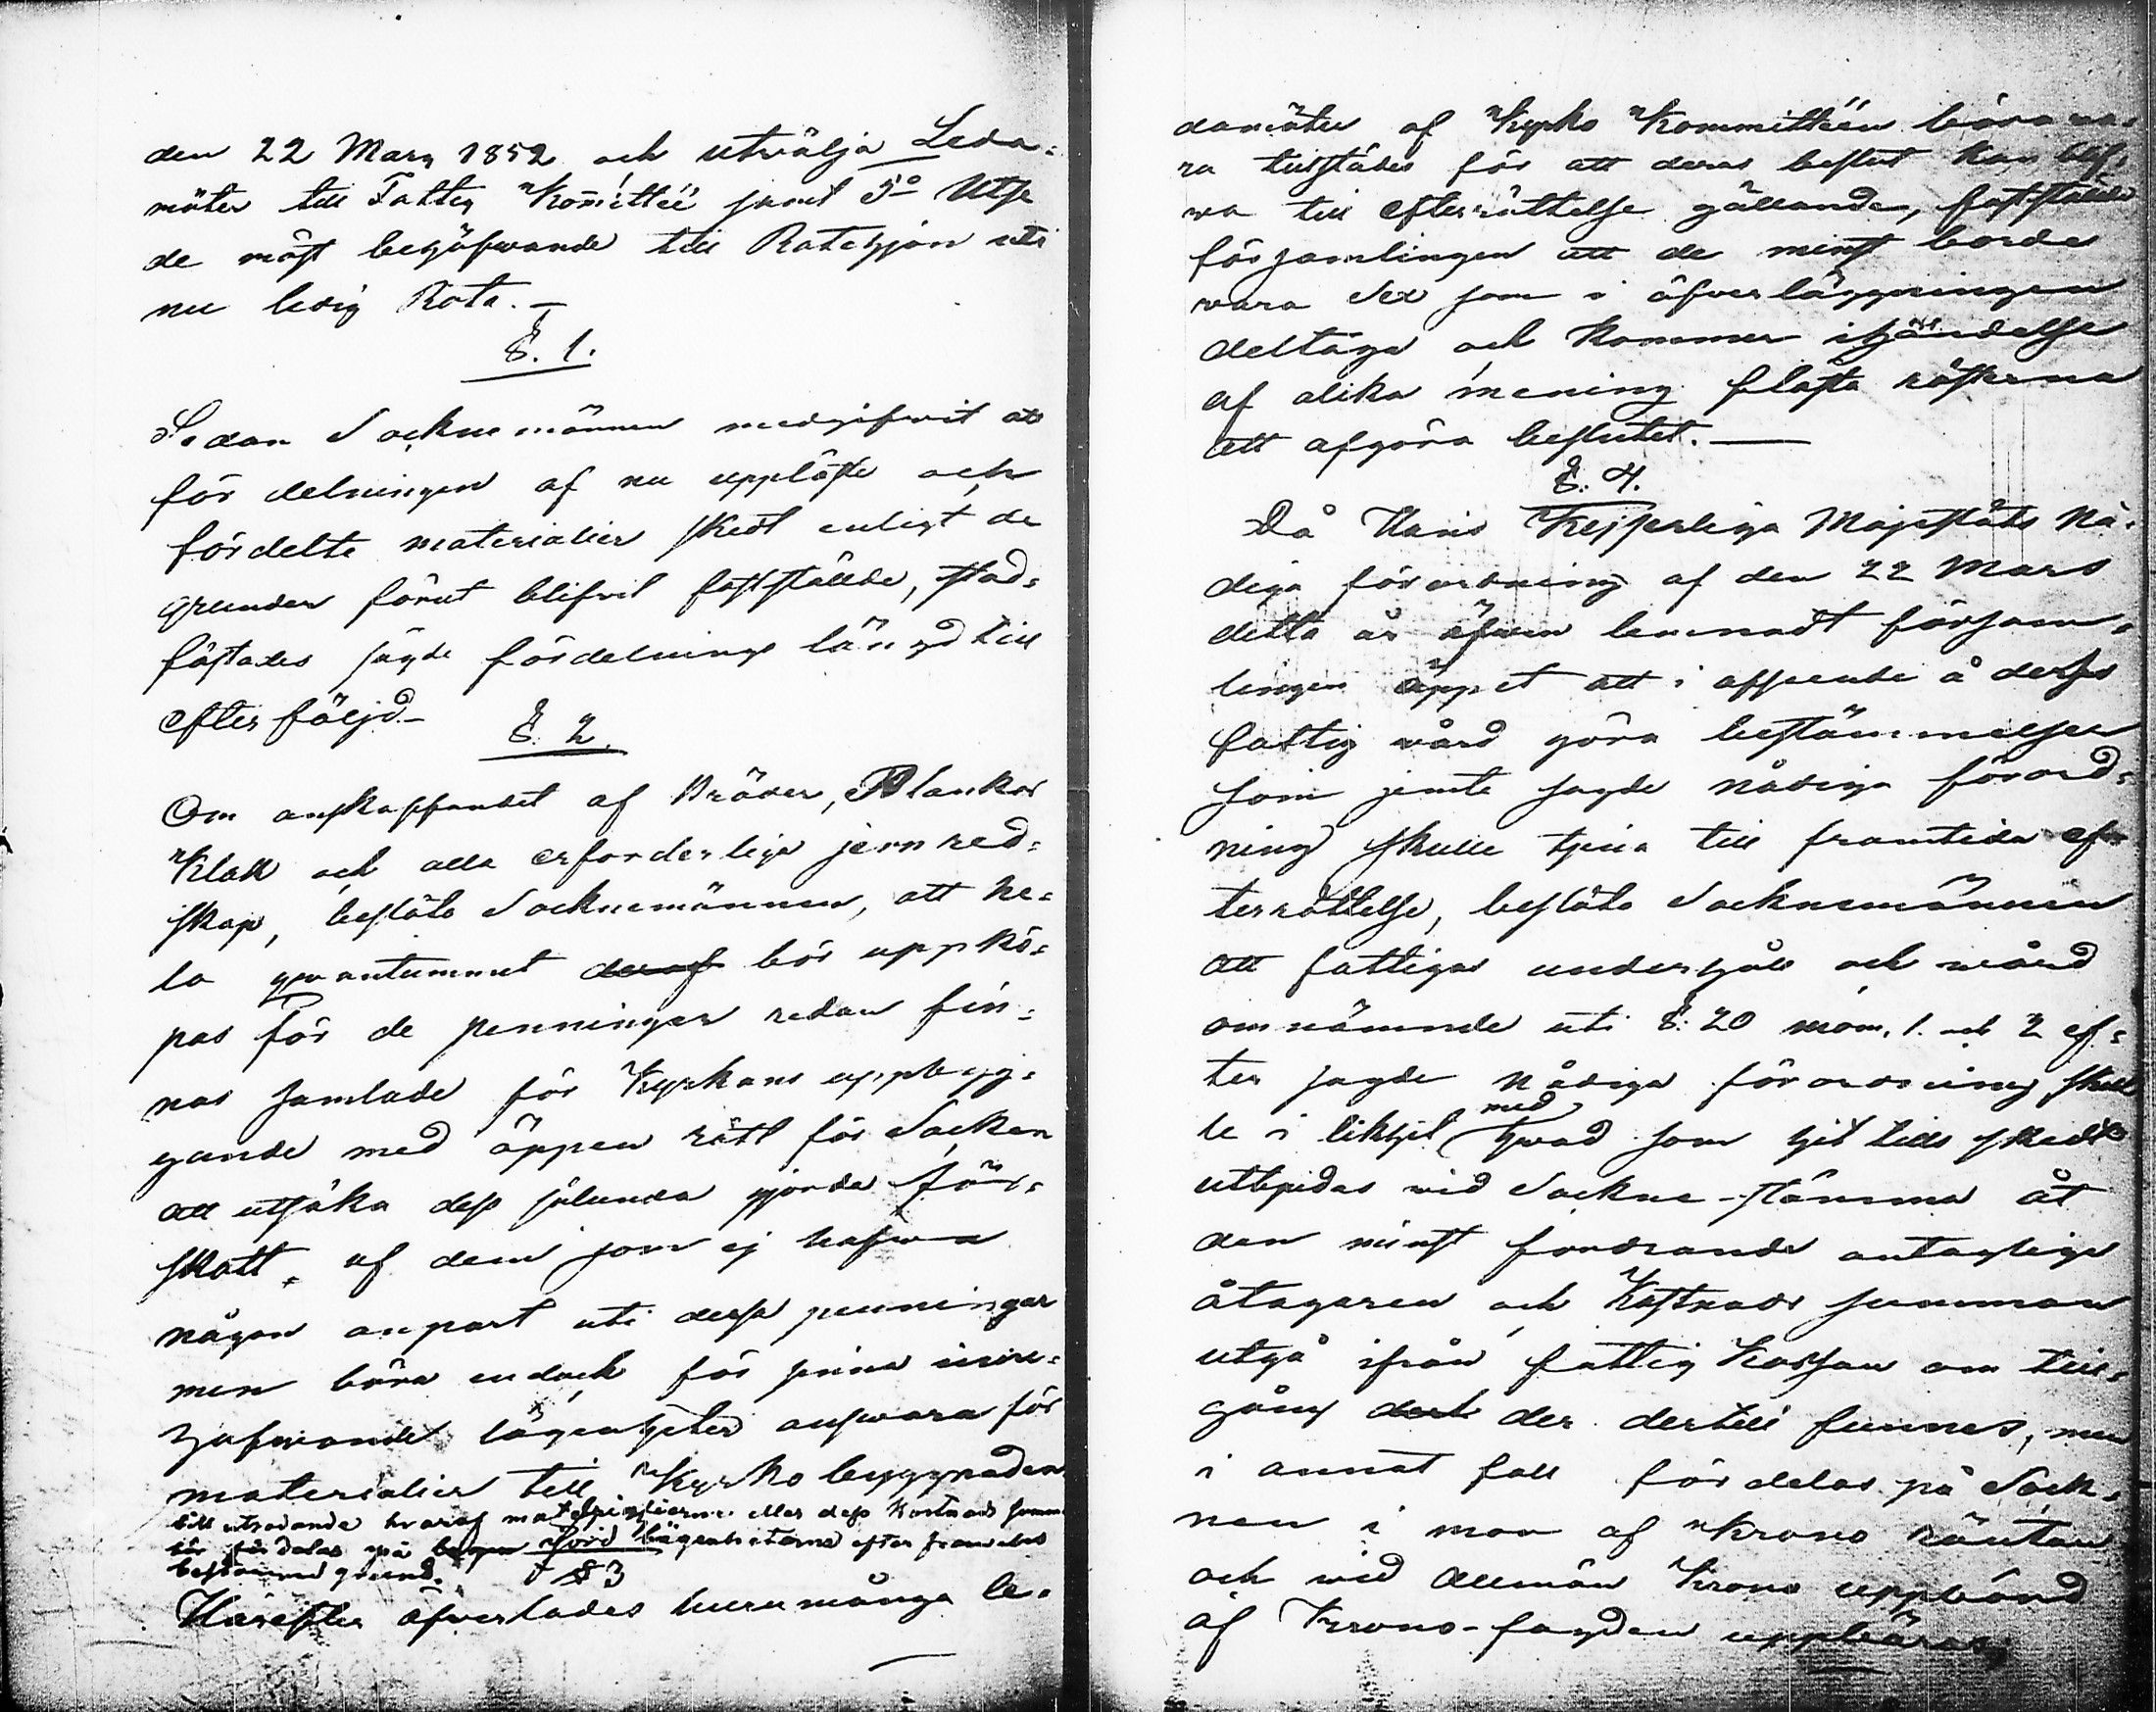 den 22 Mars 1852 och utvälja Leda-
möter till Fattig Komittéé samt 5º Utse
de mäst begäfwande till Ratehjon uti
nu ledig Rota. —
§. 1.
Sedan Socknemännen medgifwit att
för delningen af nu uppläste och
fördelte materialier skedt enligt de
grunder förut blifvit fastställde, stad-
fästades sagde fördelnings längd till
efterföljd. —
§. 2.
Om anskaffandet af Bräder, Plankor
Klakk och alla erforderliga jern red-
skap, beslöto Socknemännen, att he-
la qwantummet deraf bör uppkö-
pas för de penningar redan fin-
nas samlade för Kyrkans uppbyg-
gande med öppen rätt för Socken
att utsöka dess sålunda gjorde för-
skott, af dem som ej hafwa
någon anpart uti dessa penningar
men böra endock för sina inne-
hafwande lägenheter answara för
materialier till Kyrko byggnaden
till utrodande hvaraf materialierne eller dess Kostnads summa
bör för delas på Jord lägenheterne efter
bestämd grund.
§ 3
Härefter öfverlades huru många le-
damöter af Kyrko Kommittéén böra wa-
ra tillstädes för att deras beslut kan blif-
wa till efterrättelse gällande, fastställde
församlingen att de minst borde
wara Sex som i öfverläggningen
deltaga och kommer ihändelse
af olika mening flästa rösterna
att afgöra beslutet. —
§. 4.
Då Hans Kejserliga Majestäts Nå-
diga förordning af den 22 Mars
detta år äfwen lemnadt försam-
lingen öppet att i afseende å derss
fattig wård göra bestämmelser
som jemte sagde nådiga förord-
ning skulle tjena till framtida ef-
terrättelse, beslöto Socknemännen
att fattigas underhåll och wård
omnämnde uti §: 20 mom. 1. och 2 ef-
ter sagde Nådiga förordning skul
le i likhet med hwad som hit tills skedt
utbjudas wid Sockne-stämma åt
den minst fordrande antaglige
åtagaren och Kostnads summan
utgå ifrån fattig Kassan om till-
gång dert der dertill funnes, men
i annat fall för delas på Sock-
nen i mon af Krono räntan
och wid Allmän Krono uppbörd
af Krono-fogden uppbäras,